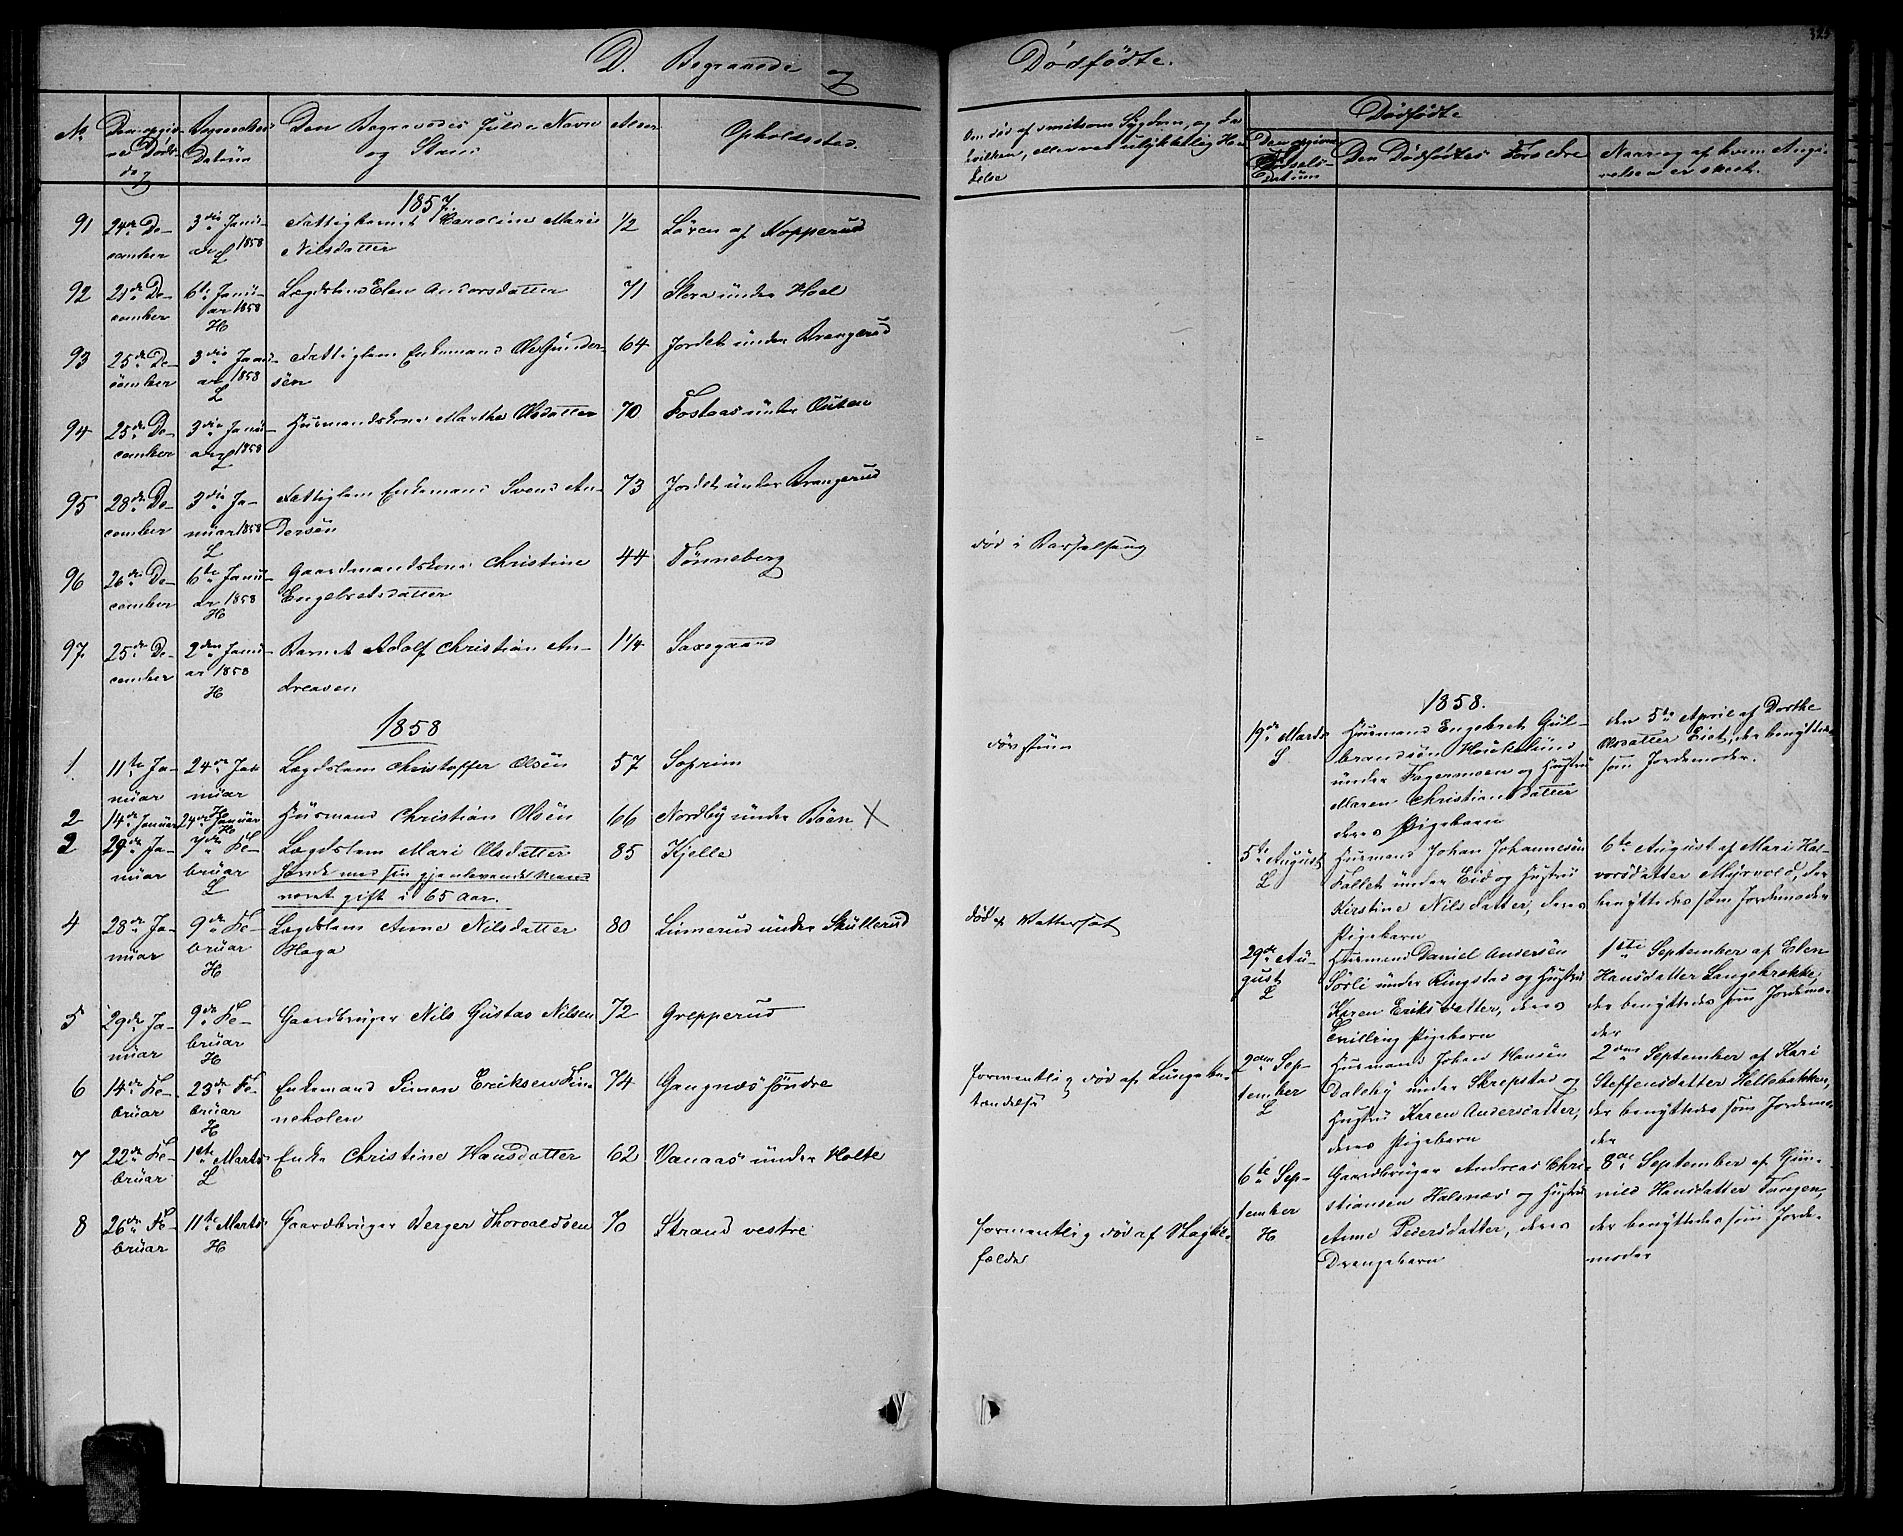 D. Begravede og Dødfødte.
325
No
Den opgivne Døds-
dag
Begravelses
Datum
Den Begravedes fulde Navn
og Stand
Alder
Opholdssted.
Om død af smitsom Sygdom, og da
hvilken, eller ved ulykkelig Hæn-
delse
Dødfødte
Den opgivne
Fødsels-
datum
Den Dødfødtes Forældre
Naar og af hvem Angi-
velsen er skeet.
1857.
91 24de De-
cember 3die Janu-
ar 1858
L Fattiglemet Caroline Marie
Nilsdatter 1/2 Løren af Kopperud
92 21de De-
cember 6te Janu-
ar 1858
H Lægdslem Elen Andersdatter 71 Skora under Hoel
93 25de De-
cember 3die Janu-
ar 1858
L Fattiglem Enkemand Ole Gunder-
sen 64 Jordet under Brangerud
94 25de De-
cember 3die Janu-
ar 1858
L Huusmandskone Marthe Olsdatter 70 Fosteras under Outen
95 28de De-
cember 3die Ja-
nuar 1858
L Fattiglem Enkemand Svend An-
dersen 73 Jordet under Brangerud
96 26de De-
cember 6te Janu-
ar 1858
H Gaardmandskone Christine
Engebretsdatter 44 Tønneberg død i Barselseng
97. 25de De-
cember 2den Janu-
ar 1858
H Barnet Adolf Christian An-
dreasen 1 1/4 Saxegaard
1858
1 11te Ja-
nuar 24de Ja-
nuar Lægdslem Christoffer Olsen 57 Soprim døvstum
2 14de Januar 24de Januar
H Husmand Christian Olsen 66 Nordby under Bøen X
2 29de Ja-
nuar 7de Fe-
bruar
L Lægdslem Mari Olsdatter
havde med sin gjenlevende Mand
været gift i 65 Aar. 85 Kjelle
4 28de Ja-
nuar 9de Fe-
bruar
H Lægdslem Anne Nilsdatter
Haga 80 Linnerud under Skullerud død af Vattersot
5 29de Ja-
nuar 9de Fe-
bruar
H Gaardbruger Nils Gustav Nilsen 72 Grepperud
6 14de Fe-
bruar 23de Fe-
bruar
H Enkemand Simen Eriksen Fin-
neholen 74 Gangnæs søndre formentlig død af Lungebe-
tændelse
7 22de Fe-
bruar 1ste Marts
L Enke Christine Hansdatter 62 Vanaas under Holte
8 26de Fe-
bruar 11te Marts
H Gaardbruger Berger Thorvaldsen 70 Strand vestre formentlig død af Slagtil-
fælde
1858.
19de Marts
L Husmand Engebret Gul-
brandsen Houkelund
under Fagermoen og Hustru
Maren Christiansdatter
deres Pigebarn den 5te April af Dorthe
Olsdatter Eid, der benyttedes
som Jordemoder.
5te August
L Husmand Johan Johannesen
Fallet under Eid og Hustru
Kirstine Nilsdatter, deres
Pigebarn 6te August af Mari Hal-
vorsdatter Myrvold, der
benyttedes som Jordemoder
29de Au-
gust
L Husmand Daniel Andersen
Sørli under Ringstad og Hustru
Karen Eriksdatter, deres
Tvilling Pigebarn 1ste September af Elen
Hansdatter Langebrække,
der benyttedes som Jordemo-
der
2den Sep-
tember
L Husmand Johan Hansen
Daleby under Skrepstad og
Hustru Karen Andersdatter,
deres Pigebarn 2den September af Kari
Steffensdatter Hellebakken,
der benyttedes som Jordemo-
der
6te Sep-
tember
H Gaardbruger Andreas Chri-
stiansen Halsnæs og Hustru
Anne Pedersdatter, deres
Drengebarn 8de September af Gun-
nild Hansdatter Tangen,
der benyttedes som Jorde-
moder